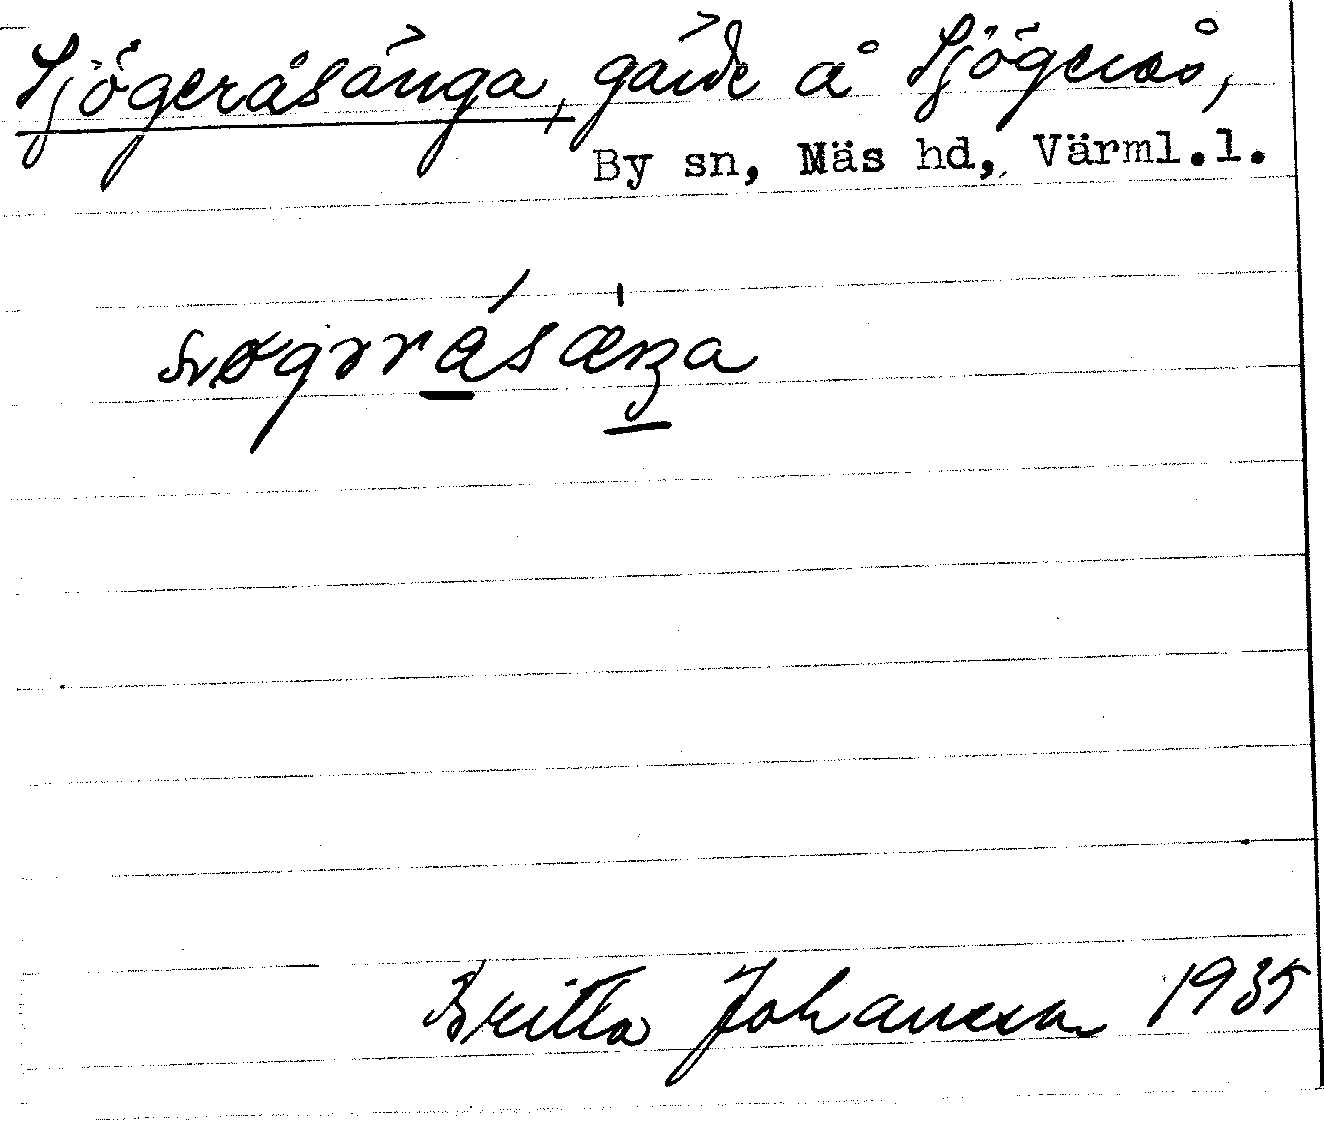 Sjögeråsänga, gärde å Sjögerås,
By sn, Mäs hd, Värml.l.
Britta Johansson 1935